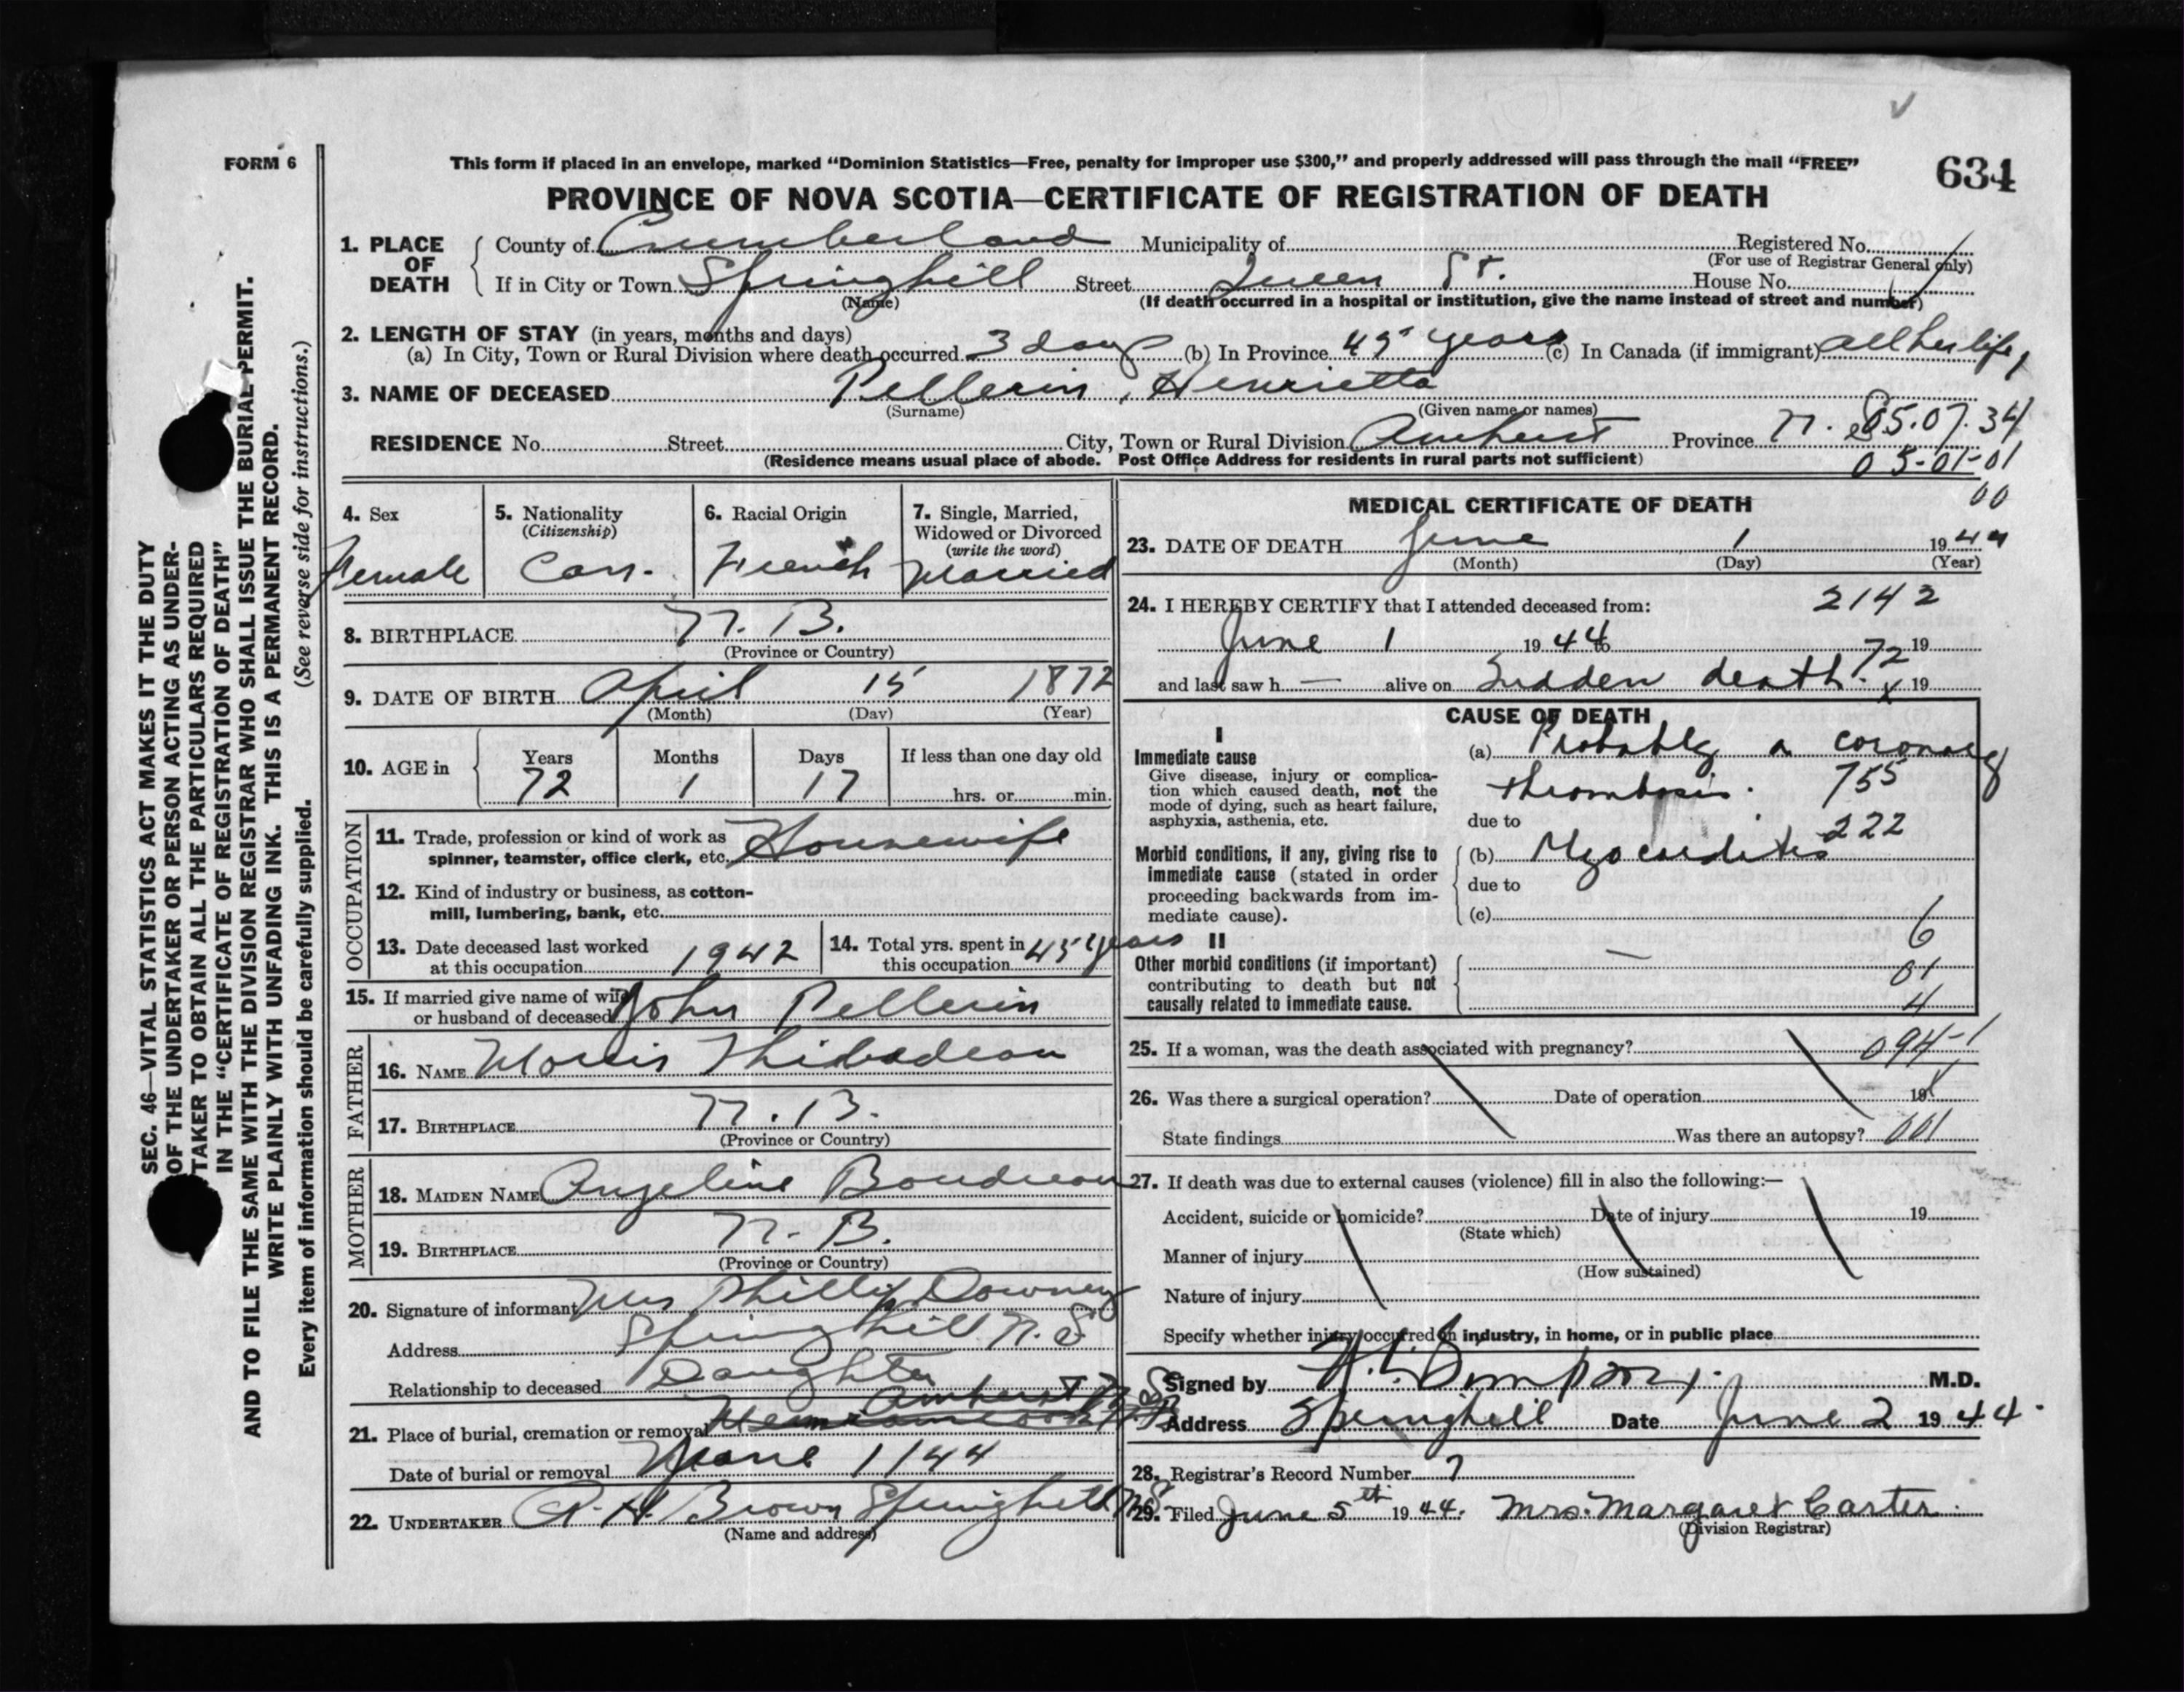 FORM 6
This form if placed in an envelope, marked "Dominion Statistics—Free, penalty for improper use $300," and properly addressed will pass through the mail "FREE"
634
PROVINCE OF NOVA SCOTIA—CERTIFICATE OF REGISTRATION OF DEATH
SEC. 46—VITAL STATISTICS ACT MAKES IT THE DUTY
OF THE UNDERTAKER OR PERSON ACTING AS UNDER-
TAKER TO OBTAIN ALL THE PARTICULARS REQUIRED
IN THE "CERTIFICATE OF REGISTRATION OF DEATH"
AND TO FILE THE SAME WITH THE DIVISION REGISTRAR WHO SHALL ISSUE THE BURIAL PERMIT.
WRITE PLAINLY WITH UNFADING INK. THIS IS A PERMANENT RECORD.
Every item of information should be carefully supplied. (See reverse side for instructions.)
1. PLACE OF DEATH
County of Cumberland Municipality of Registered No.
(For use of Registrar General only)
If in City or Town Springhill Street Queen St. House No.
(Name) (If death occurred in a hospital or institution, give the name instead of street and number)
2. LENGTH OF STAY (in years, months and days)
(a) In City, Town or Rural Division where death occurred 3 days (b) In Province 45 years (c) In Canada (if immigrant) all her life
3. NAME OF DECEASED Pellerin, Henrietta
(Surname) (Given name or names)
RESIDENCE No. Street City, Town or Rural Division Amherst Province N. S 05.07.34
(Residence means usual place of abode. Post Office Address for residents in rural parts not sufficient) 05-01-01
00
4. Sex Female
5. Nationality (Citizenship) Can.
6. Racial Origin French
7. Single, Married, Widowed or Divorced (write the word) Married
8. BIRTHPLACE N. B.
(Province or Country)
9. DATE OF BIRTH April 15 1872
(Month) (Day) (Year)
10. AGE in Years Months Days If less than one day old
72 1 17 hrs. or min.
OCCUPATION
11. Trade, profession or kind of work as spinner, teamster, office clerk, etc. Housewife
12. Kind of industry or business, as cotton-mill, lumbering, bank, etc.
13. Date deceased last worked at this occupation 1942
14. Total yrs. spent in this occupation 45 years
15. If married give name of wife or husband of deceased John Pellerin
FATHER
16. NAME Morris Thibadeau
17. BIRTHPLACE N. B.
(Province or Country)
MOTHER
18. MAIDEN NAME Angeline Boudreau
19. BIRTHPLACE N. B.
(Province or Country)
20. Signature of informant Mrs Phillip Downey
Address Springhill N. S
Relationship to deceased Daughter
21. Place of burial, cremation or removal Amherst N. S
Date of burial or removal June 1 144
22. UNDERTAKER A. H. Brown Springhill N.S
(Name and address)
MEDICAL CERTIFICATE OF DEATH
23. DATE OF DEATH June 1 1944
(Month) (Day) (Year)
24. I HEREBY CERTIFY that I attended deceased from: 2142
June 1 1944 to 19
72
and last saw h — alive on Sudden death. x 19
CAUSE OF DEATH
I
Immediate cause
Give disease, injury or complication which caused death, not the mode of dying, such as heart failure, asphyxia, asthenia, etc.
(a) Probably a coronary
thrombosis. 755
due to 222
Morbid conditions, if any, giving rise to immediate cause (stated in order proceeding backwards from immediate cause).
(b) Myocarditis
due to
(c)
6
II
Other morbid conditions (if important) contributing to death but not causally related to immediate cause.
—
01
4
25. If a woman, was the death associated with pregnancy? 094-1
26. Was there a surgical operation? Date of operation 19
State findings Was there an autopsy? 001
27. If death was due to external causes (violence) fill in also the following:—
Accident, suicide or homicide? Date of injury 19
(State which)
Manner of injury
(How sustained)
Nature of injury
Specify whether injury occurred in industry, in home, or in public place
Signed by M.D.
Address Springhill Date June 2 1944.
28. Registrar's Record Number 7
29. Filed June 5th 1944. Mrs. Margaret Carter
(Division Registrar)